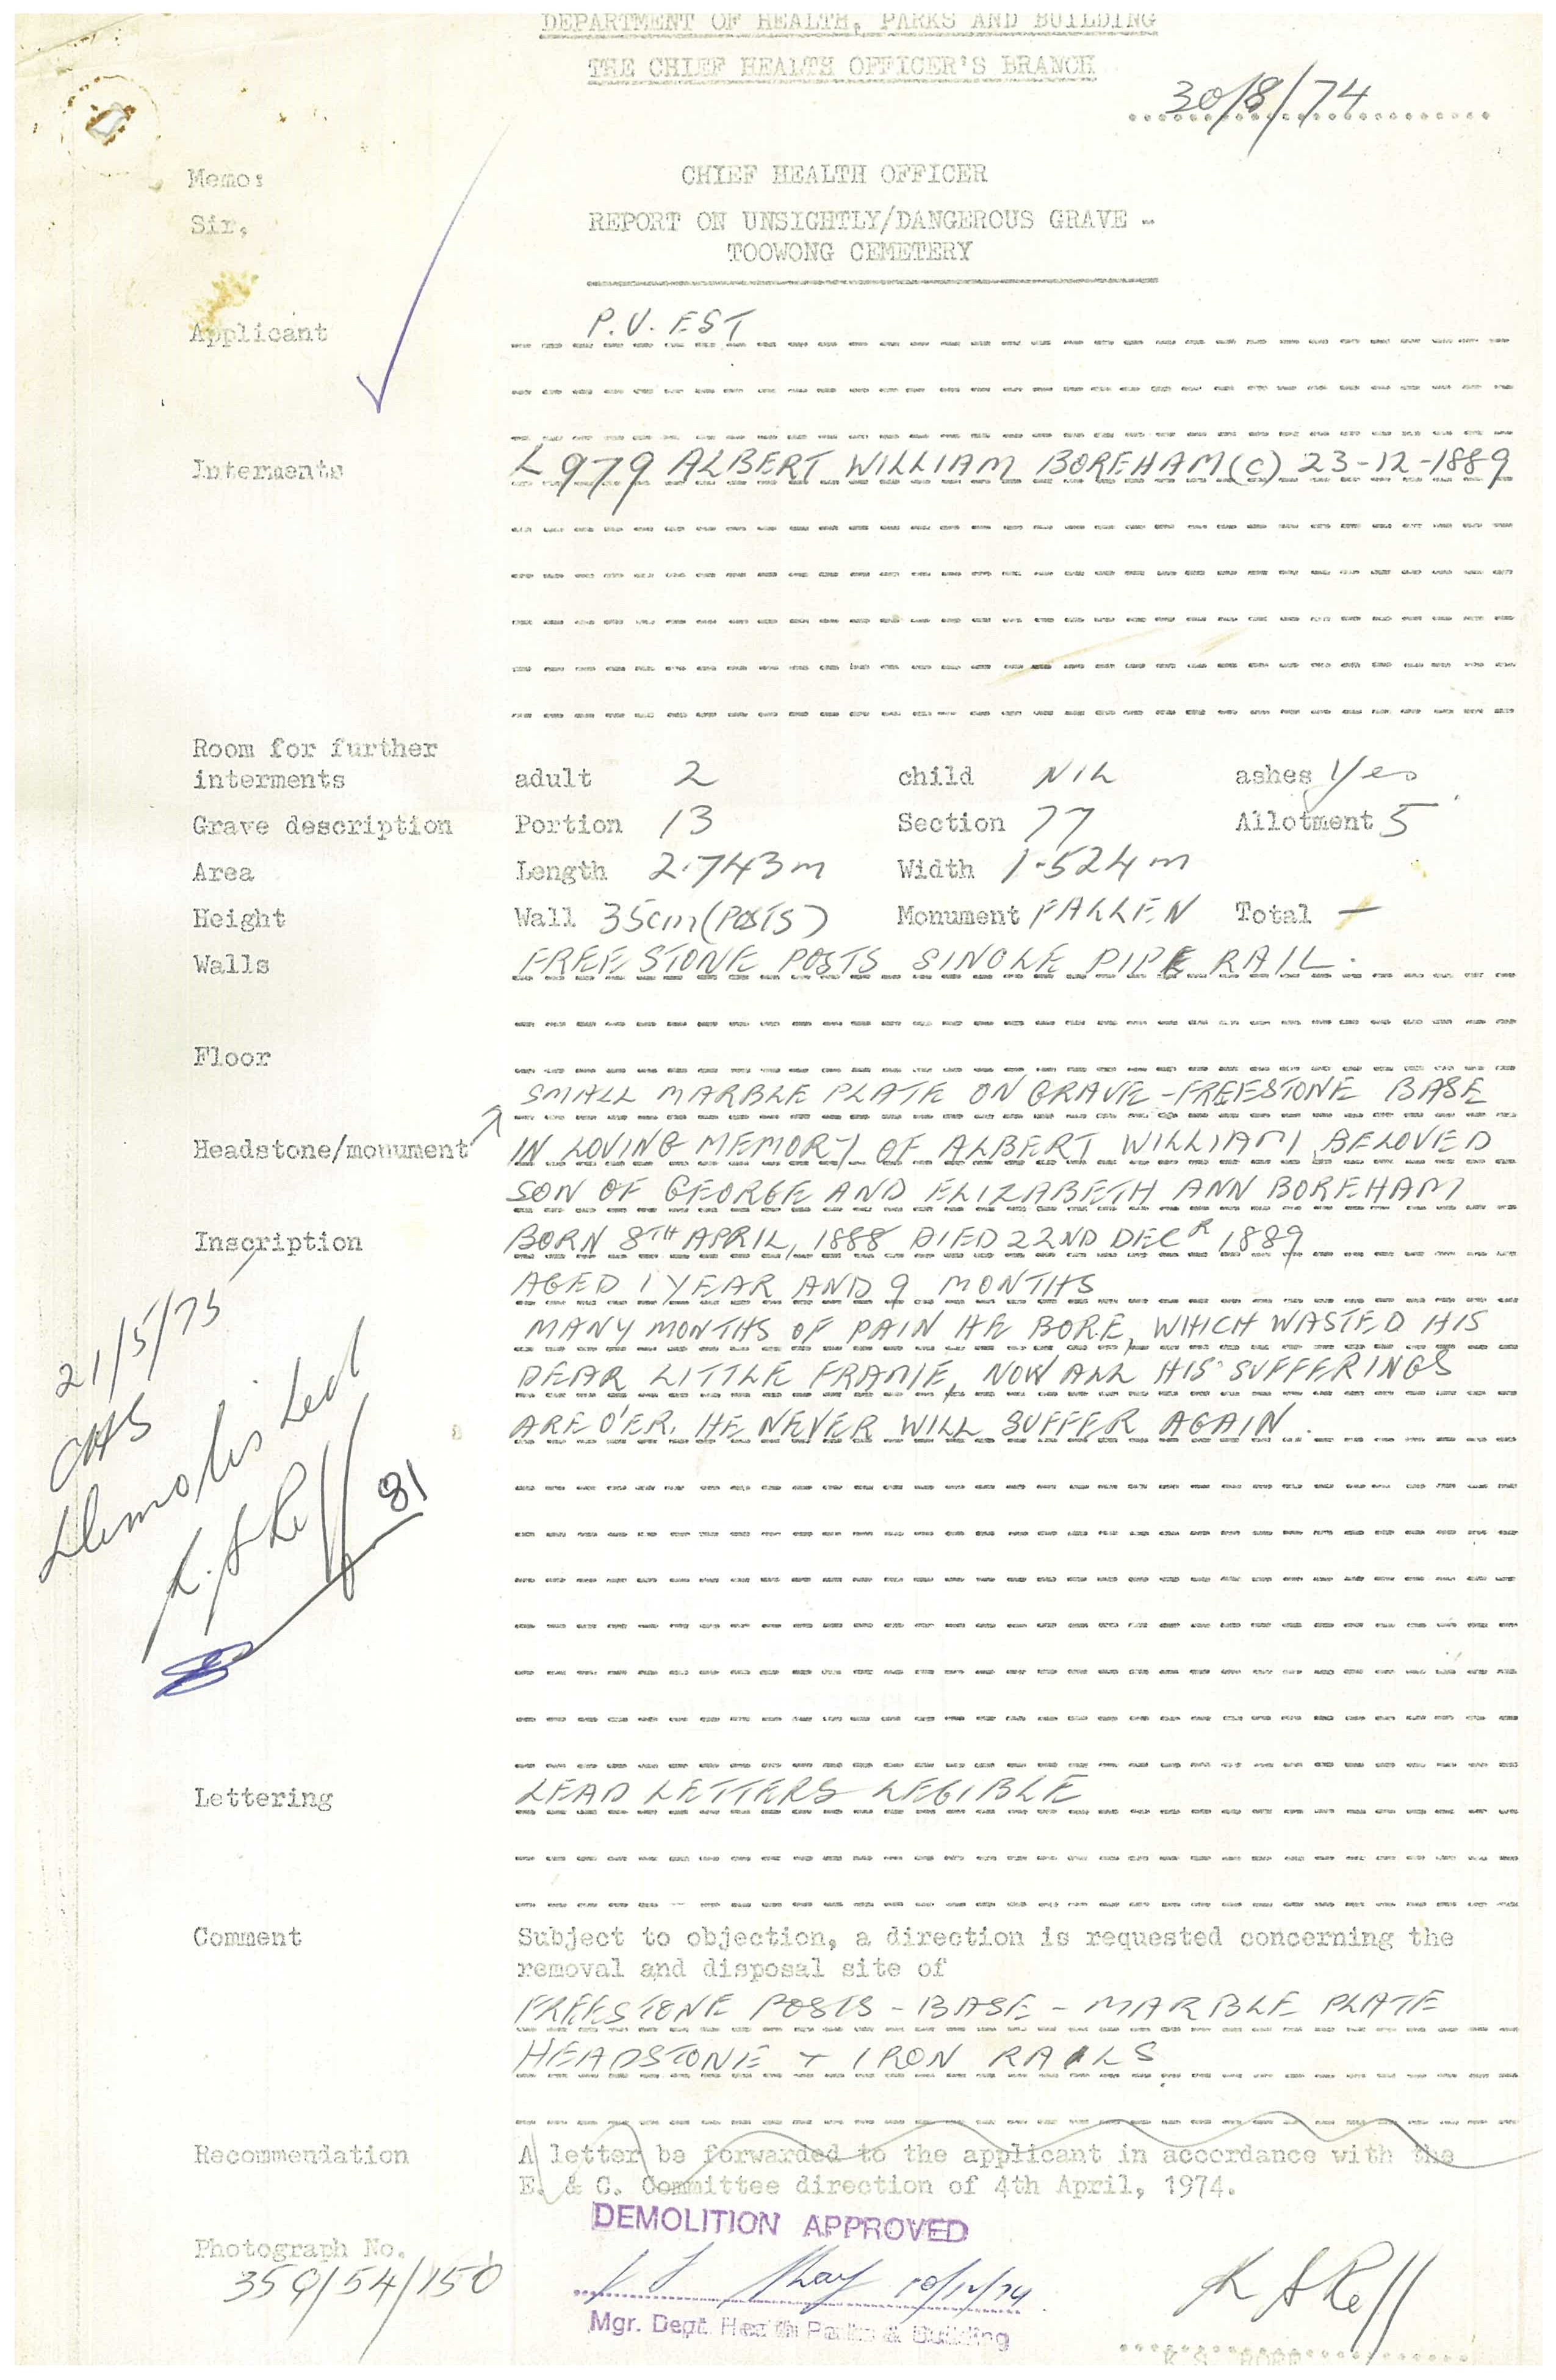 DEPARTMENT OF HEALTH, PARKS AND BUILDING
THE CHIEF HEALTH OFFICER'S BRANCH
30/8/74
Memo: CHIEF HEALTH OFFICER
Sir, REPORT ON UNSIGHTLY/DANGEROUS GRAVE -
TOOWONG CEMETERY
Applicant P.V. EST
Interments L979 ALBERT WILLIAM BOREHAM (C) 23-12-1889
Room for further
interments adult 2 child NIL ashes Yes
Grave description Portion 13 Section 77 Allotment 5
Area Length 2.743m Width 1.524m
Height Wall 35cm (POSTS) Monument FALLEN Total -
Walls FREESTONE POSTS SINGLE PIPE RAIL.
Floor
SMALL MARBLE PLATE ON GRAVE - FREESTONE BASE
Headstone/monument IN LOVING MEMORY OF ALBERT WILLIAM, BELOVED
SON OF GEORGE AND ELIZABETH ANN BOREHAM
Inscription BORN 8TH APRIL, 1888 DIED 22ND DECR 1889
AGED 1 YEAR AND 9 MONTHS
MANY MONTHS OF PAIN HE BORE, WHICH WASTED HIS
DEAR LITTLE FRAME, NOW ALL HIS SUFFERINGS
ARE O'ER, HE NEVER WILL SUFFER AGAIN.
21/5/75
CHS
Demolished
81
Lettering LEAD LETTERS LEGIBLE
Comment Subject to objection, a direction is requested concerning the
removal and disposal site of
FREESTONE POSTS - BASE - MARBLE PLATE
HEADSTONE + IRON RAILS
Recommendation A letter be forwarded to the applicant in accordance with the
E. & C. Committee direction of 4th April, 1974.
DEMOLITION APPROVED
Photograph No.
359/54/150
10/12/74
Mgr. Dept. Health Parks & Building